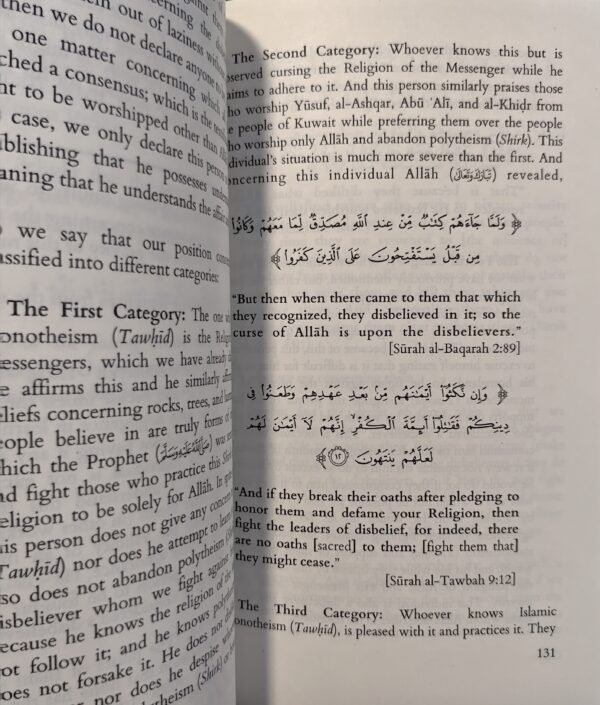 out of laziness
then we do not declare anyone
one matter concerning which
ched a consensus; which is the
to be worshipped other than
case, we only declare this person
blishing that he possesses
aning that he understands the
we say that our position
assified into different categories:
The First Category: The one
onotheism (Tawḥīd) is the
essengers, which we have already
affirms this and he similarly
eliefs concerning rocks, trees, and
eople believe in are truly forms of
which the Prophet (ﷺ) was
nd fight those who practice this
eligion to be solely for Allāh. In
is person does not give any
Tawḥīd) nor does he attempt to
so does not abandon polytheism
isbeliever whom we fight against
ecause he knows the religion of the
ot follow it; and he knows
oes not forsake it. He does not
nor does he despise
ytheism (Shirk) or
The Second Category: Whoever knows this but is
served cursing the Religion of the Messenger while he
aims to adhere to it. And this person similarly praises those
ho worship Yūsuf, al-Ashqar, Abū ʿAlī, and al-Khiḍr from
e people of Kuwait while preferring them over the people
ho worship only Allāh and abandon polytheism (Shirk). This
dividual's situation is much more severe than the first. And
ncerning this individual Allāh (تَبَارَكَ وَتَعَالَى) revealed,
﴿ وَلَمَّا جَاءَهُمْ كِتَـٰبٌ مِّنْ عِندِ اللَّهِ مُصَدِّقٌ لِّمَا مَعَهُمْ وَكَانُوا
مِن قَبْلُ يَسْتَفْتِحُونَ عَلَى الَّذِينَ كَفَرُوا ﴾
"But then when there came to them that which
they recognized, they disbelieved in it; so the
curse of Allāh is upon the disbelievers."
[Sūrah al-Baqarah 2:89]
﴿ وَإِن نَّكَثُوا أَيْمَـٰنَهُم مِّنْ بَعْدِ عَهْدِهِمْ وَطَعَنُوا فِى
دِينِكُمْ فَقَـٰتِلُوا أَئِمَّةَ الْكُفْرِ إِنَّهُمْ لَا أَيْمَـٰنَ لَهُمْ
لَعَلَّهُمْ يَنتَهُونَ ١٢ ﴾
"And if they break their oaths after pledging to
honor them and defame your Religion, then
fight the leaders of disbelief, for indeed, there
are no oaths [sacred] to them; [fight them that]
they might cease."
[Sūrah al-Tawbah 9:12]
The Third Category: Whoever knows Islamic
onotheism (Tawḥīd), is pleased with it and practices it. They
131